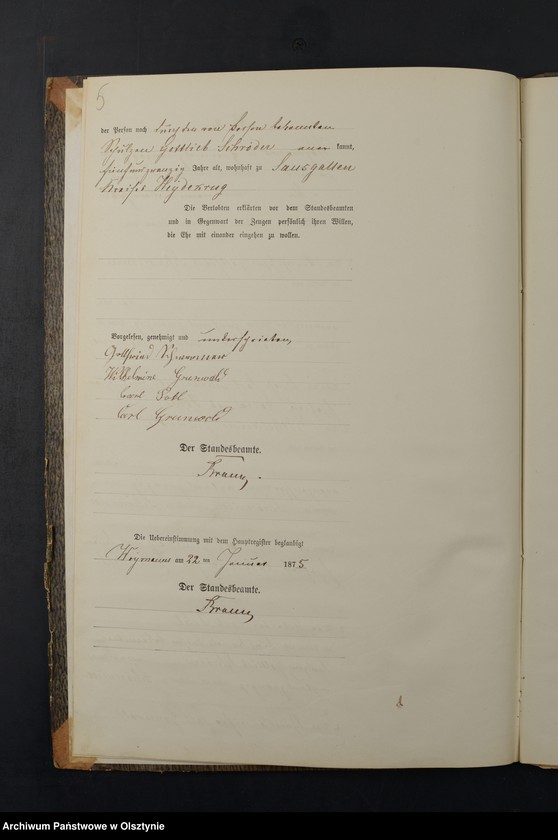 5
der Person nach durch den von Person bekannten
Schulzen Gottlieb Schröder kannt,
fünfundzwanzig Jahre alt, wohnhaft zu Sausgallen
Kreises Heydekrug
Die Verlobten erklärten vor dem Standesbeamten
und in Gegenwart der Zeugen persönlich ihren Willen,
die Ehe mit einander eingehen zu wollen.
Vorgelesen, genehmigt und unterschrieben
Gottfried
Wilhelmine Grunwald
Carl
Carl Grunwald
Der Standesbeamte.
Braun
Die Uebereinstimmung mit dem Hauptregister beglaubigt
am 22 ten Januar 1875
Der Standesbeamte.
Braun
Archiwum Państwowe w Olsztynie